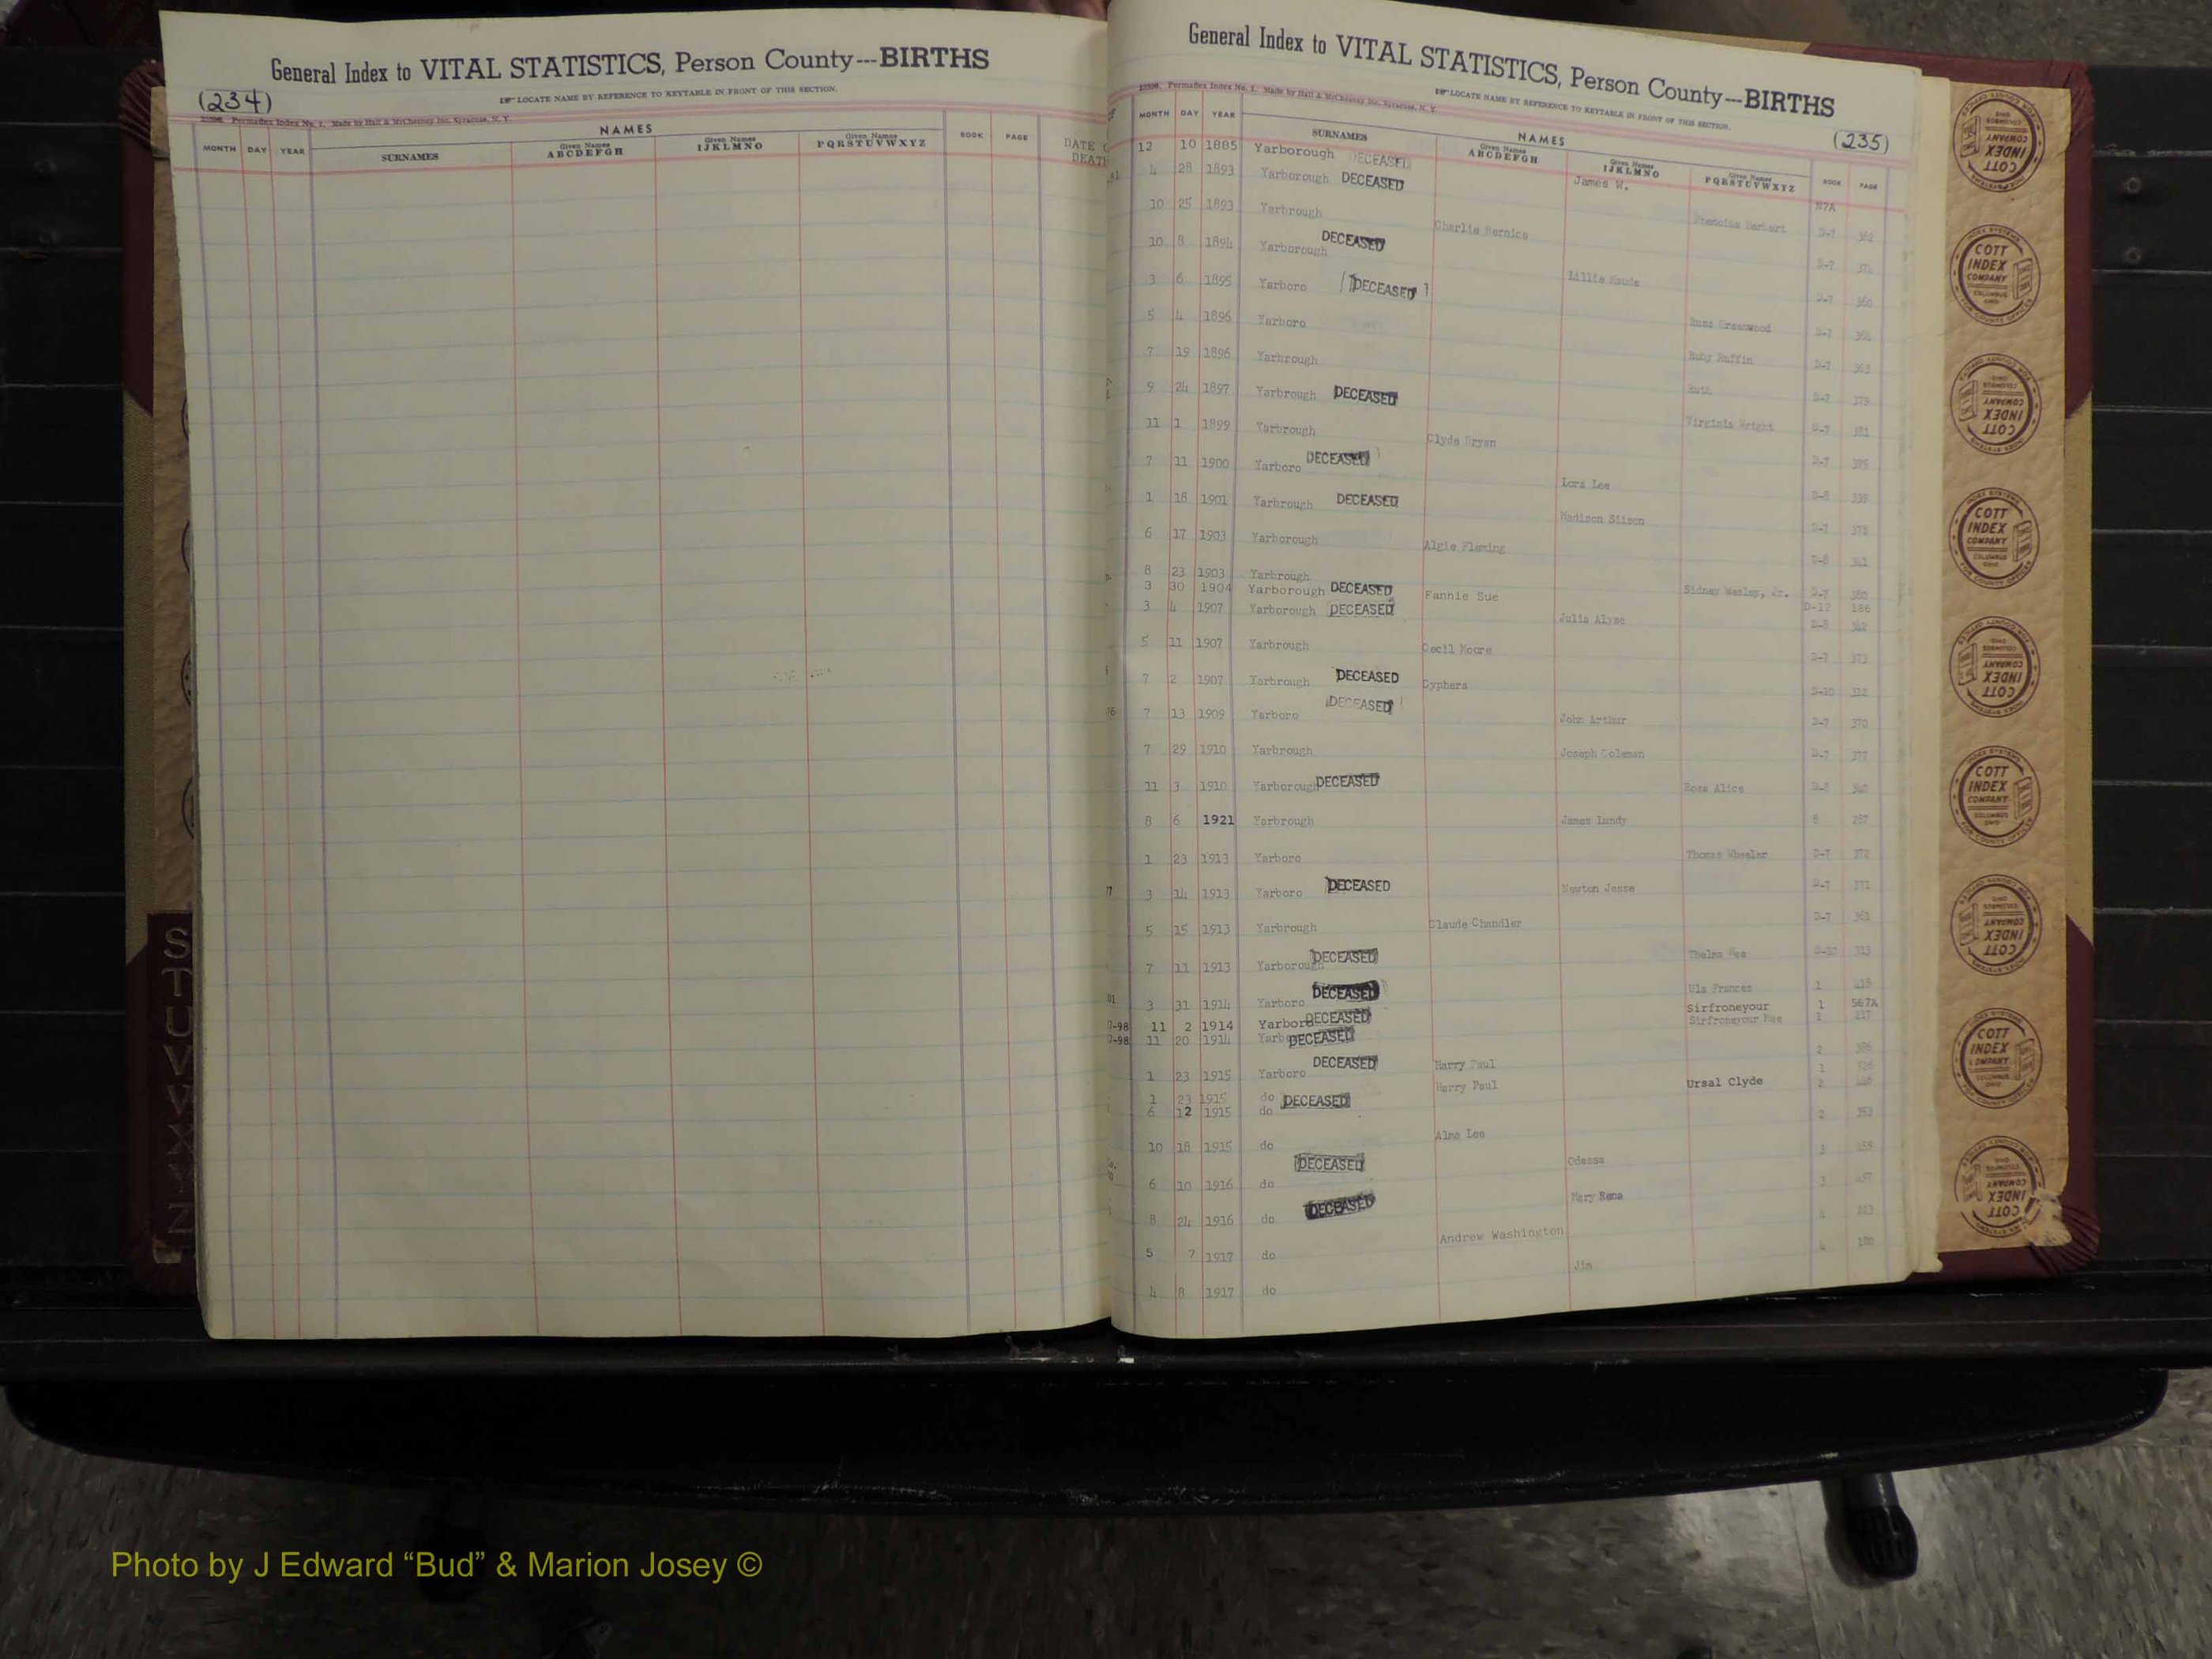 General Index to VITAL STATISTICS, Person County---BIRTHS
LOCATE NAME BY REFERENCE TO KEYTABLE IN FRONT OF THIS SECTION.
(234)
Permaflex Index No. 1. Made by Hall & McChesney Inc. Syracuse, N. Y.
MONTH DAY YEAR SURNAMES NAMES Given Names ABCDEFGH Given Names IJKLMNO Given Names PQRSTUVWXYZ BOOK PAGE DATE DEATH
General Index to VITAL STATISTICS, Person County---BIRTHS
LOCATE NAME BY REFERENCE TO KEYTABLE IN FRONT OF THIS SECTION.
(235)
Permaflex Index No. 1. Made by Hall & McChesney Inc. Syracuse, N. Y.
MONTH DAY YEAR SURNAMES NAMES Given Names ABCDEFGH Given Names IJKLMNO Given Names PQRSTUVWXYZ BOOK PAGE
12 10 1885 Yarborough DECEASED James W. N7A
4 28 1893 Yarborough DECEASED Herbert D-7 362
10 25 1893 Yarbrough Charlie Bernice D-7
10 8 1894 Yarborough DECEASED Lillie Maude D-7 360
3 6 1895 Yarboro DECEASED Greenwood D-7 364
5 4 1896 Yarboro Ruby Ruffin D-7 363
7 19 1896 Yarbrough Ruth D-7 379
9 24 1897 Yarbrough DECEASED Virginia Wright D-7 381
11 1 1899 Yarbrough Clyde Bryan D-7
7 11 1900 Yarboro DECEASED Lora Lee D-8 339
1 18 1901 Yarbrough DECEASED Madison D-7 378
6 17 1903 Yarborough Algie Fleming D-8 341
8 23 1903 Yarbrough Sidney Wesley, Jr. D-7 380
3 30 1904 Yarborough DECEASED Fannie Sue D-12 186
3 4 1907 Yarborough DECEASED Julia Alyse D-8 342
5 11 1907 Yarbrough Cecil Moore D-7 373
7 2 1907 Yarbrough DECEASED Cyphers D-10 312
7 13 1909 Yarboro DECEASED John Arthur D-7 370
7 29 1910 Yarbrough Joseph Coleman D-7 377
11 3 1910 Yarborough DECEASED Rosa Alice D-8 340
8 6 1921 Yarbrough James Lundy 8 287
1 23 1913 Yarboro Thomas Wheeler D-7 372
3 14 1913 Yarboro DECEASED Newton Jesse D-7 371
5 15 1913 Yarbrough Claude Chandler D-7 361
7 11 1913 Yarborough DECEASED Thelma D-10 313
3 31 1914 Yarboro DECEASED Ula Frances 1 415
11 2 1914 Yarboro DECEASED Sirfroneyour 1 567A
11 20 1914 DECEASED Sirfroneyour Mae 1 217
1 23 1915 Yarboro DECEASED Harry Paul 2
1 23 1915 do DECEASED Harry Paul 1
6 12 1915 do Ursal Clyde 2
10 18 1915 do Alma Lee 2 353
6 10 1916 do DECEASED Odessa 3
8 24 1916 do DECEASED Mary Rena 3
5 7 1917 do Andrew Washington 4
4 8 1917 do Jim 4
S
T
U
V
COTT INDEX COMPANY COLUMBUS OHIO
INDEX SYSTEMS FOR COUNTY OFFICES
Photo by J Edward “Bud” & Marion Josey ©